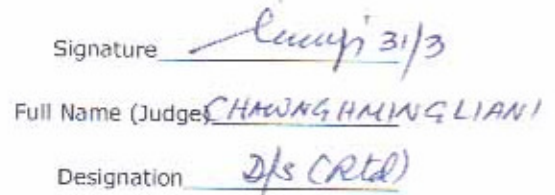 Signature 31/3
Full Name (Judge) CHAWNGHMINGLIANI
Designation D/S (Rtd)